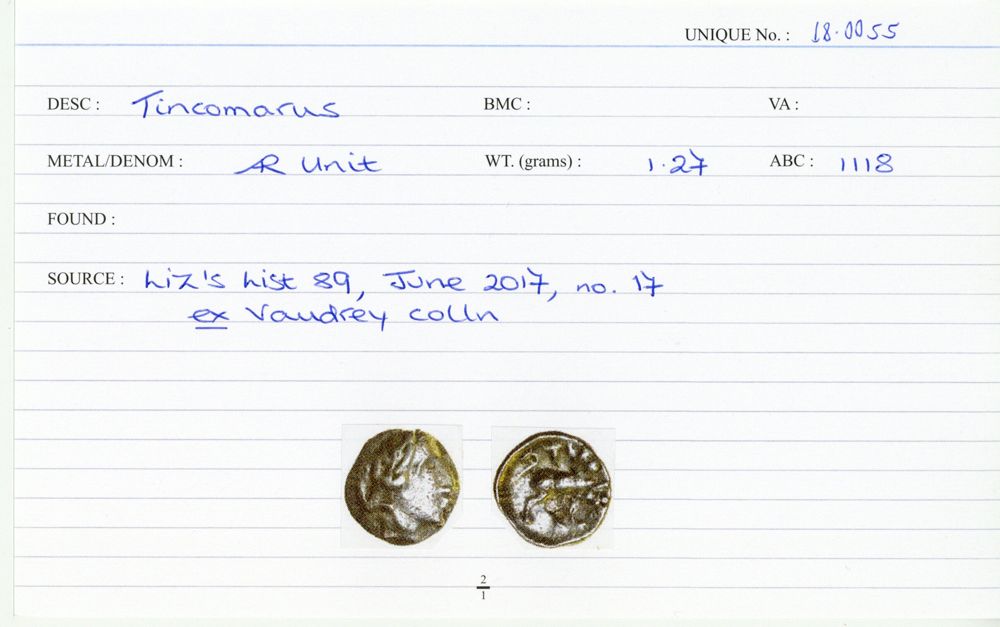 UNIQUE No. : 18.0055
DESC : Tincomarus BMC : VA :
METAL/DENOM : AR Unit WT. (grams) : 1.27 ABC : 1118
FOUND :
SOURCE : Liz's List 89, June 2017, no. 17
ex Vaudrey colln
2
1